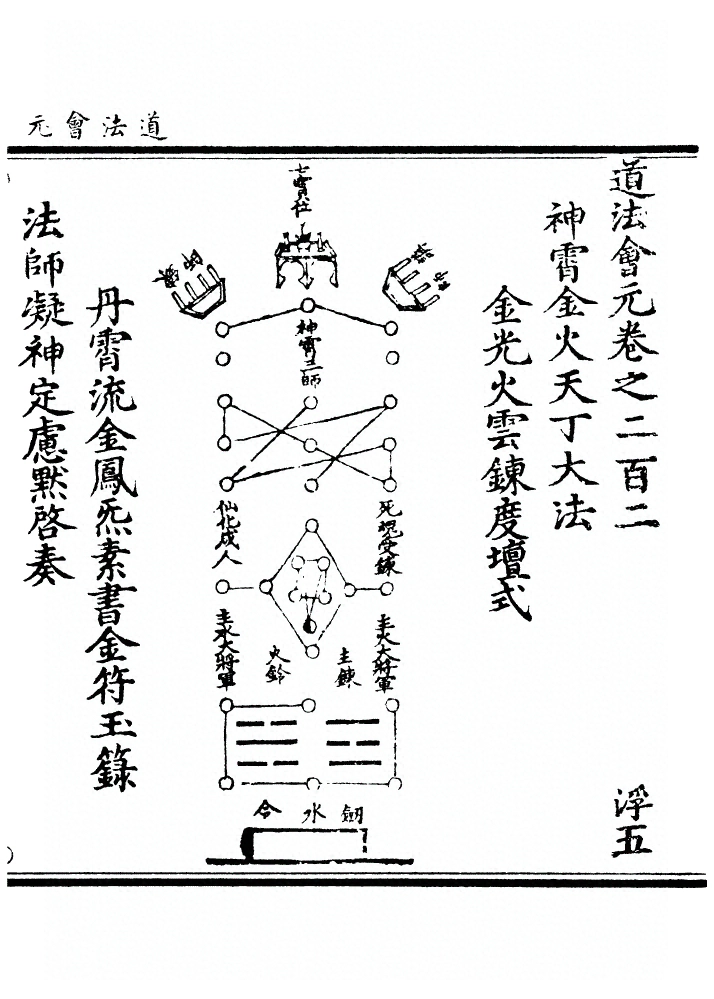 道法會元
道法會元卷之二百二
浮五
神霄金火天丁大法
金光火雲鍊度壇式
七寶位
神霄三師
死魂受鍊
仙化成人
主火大將軍
主鍊
火鈴
主水大將軍
劒
水
令
丹霄流金鳳炁素書金符玉籙
法師凝神定慮默啓奏